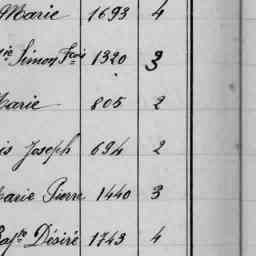 Marie 1693 4
Simon Fcois 1320 3
Marie 805 2
Joseph 694 2
Marie Pierre 1440 3
Bapte Désiré 1743 4